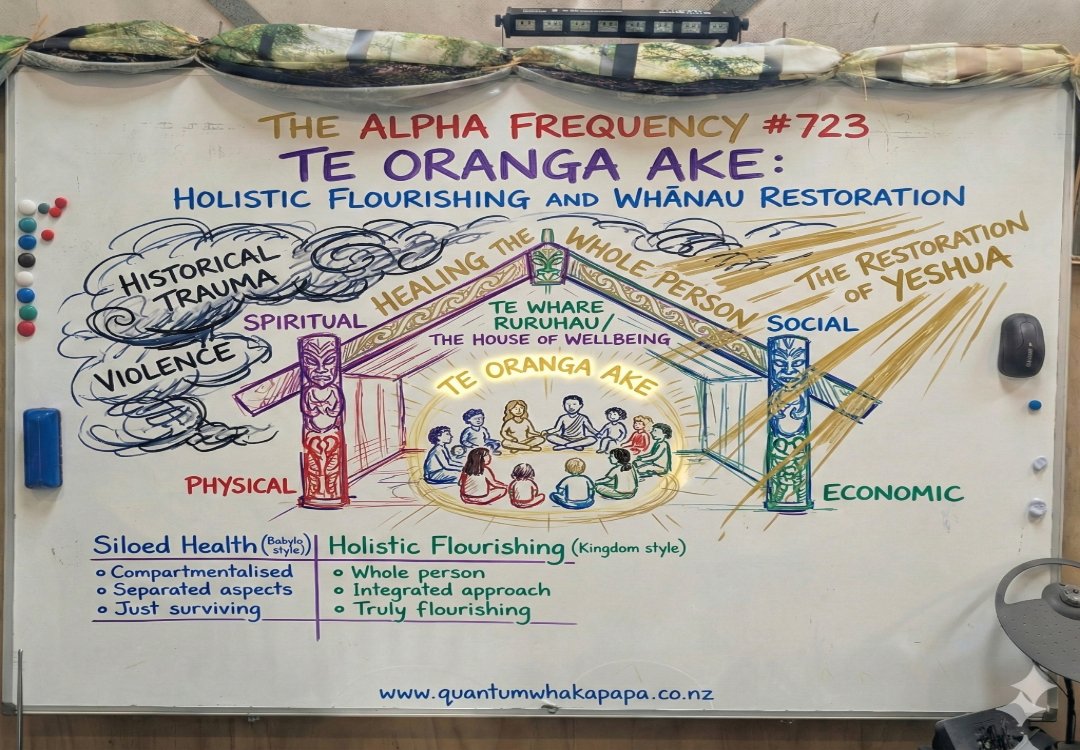 THE ALPHA FREQUENCY #723
TE ORANGA AKE:
HOLISTIC FLOURISHING AND WHĀNAU RESTORATION
HISTORICAL
TRAUMA
VIOLENCE
HEALING THE WHOLE PERSON
THE RESTORATION
OF YESHUA
SPIRITUAL
TE WHARE
RURUHAU/
THE HOUSE OF WELLBEING
SOCIAL
TE ORANGA AKE
PHYSICAL
ECONOMIC
Siloed Health (Babylo style)
Compartmentalised
Separated aspects
Just surviving
Holistic Flourishing (Kingdom style)
Whole person
Integrated approach
Truly flourishing
www.quantumwhakapapa.co.nz